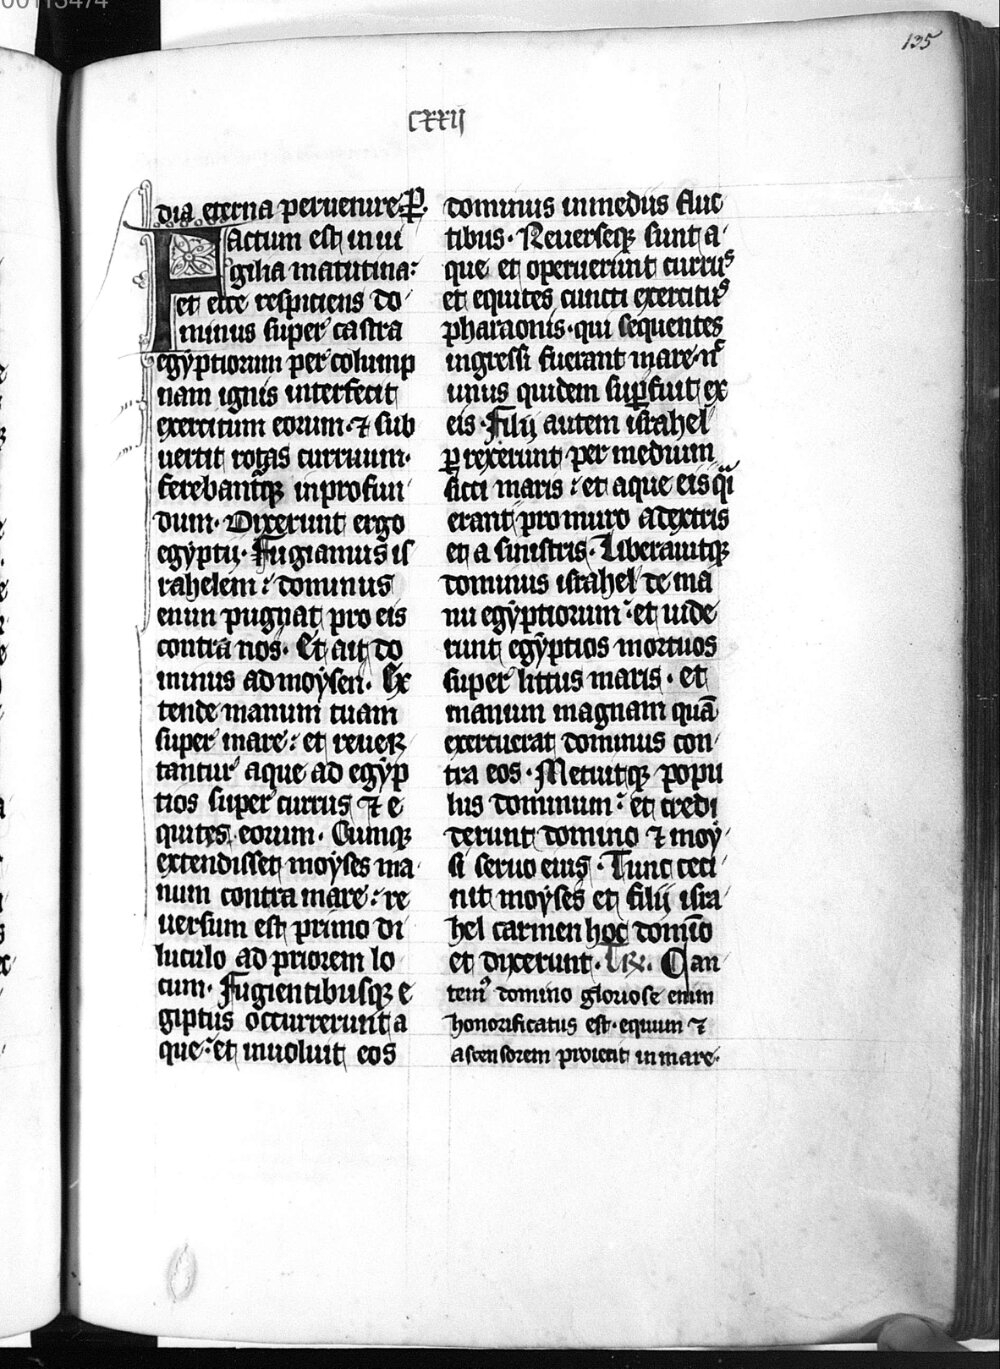 00113474
135
cxxij
dia eterna peruenire. P.
Factum est in ui
gilia matutina:
et ecce respiciens do
minus super castra
egyptiorum per colump
nam ignis interfecit
exercitum eorum. ⁊ sub
uertit rotas curruum.
ferebantꝗꝫ in profun
dum. Dixerunt ergo
egyptij. Fugiamus is
rahelem: dominus
enim pugnat pro eis
contra nos. Et ait do
minus ad moysen. Ex
tende manum tuam
super mare: et reuer
tantur aque ad egyp
tios super currus ⁊ e
quites eorum. Cumqꝫ
extendisset moyses ma
num contra mare: re
uersum est primo di
luculo ad priorem lo
cum. Fugientibusqꝫ e
giptiis occurrerunt a
que: et inuoluit eos
dominus in mediis fluc
tibus. Reuerseqꝫ sunt a
que et operuerunt currus
et equites cuncti exercitus
pharaonis. qui sequentes
ingressi fuerant mare. nͨ
unus quidem suꝑfuit ex
eis. Filij autem israhel
ꝑrexerunt per medium
sicci maris: et aque eis qͣi
erant pro muro a dextris
et a sinistris. Liberauitqꝫ
dominus israhel de ma
nu egyptiorum: et uide
runt egyptios mortuos
super littus maris. et
manum magnam quā
exercuerat dominus con
tra eos. Metuitqꝫ popu
lus dominum: et credi
derunt domino ⁊ moy
si seruo eius. Tunc ceci
nit moyses et filij isra
hel carmen hoc domīo
et dixerunt. Tr̄. Can
tem᷒ domino gloriose enim
honorificatus est. equum ⁊
ascensorem proiecit in mare.